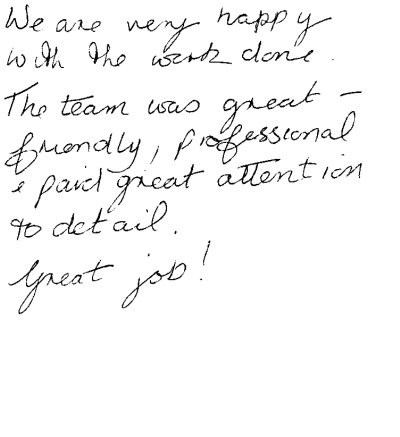 We are very happy
with the work done.
The team was great –
friendly, professional
& paid great attention
to detail.
Great job!